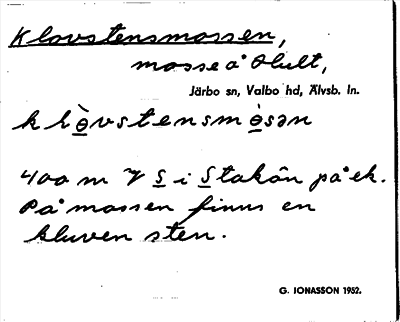 Klovstensmossen,
mosse å Hult,
Järbo sn, Valbo hd, Älvsb. ln.
klòvstensmòsən
400 m V S i Stakån på ek.
På mossen finns en
kluven sten.
G. IONASSON 1952.